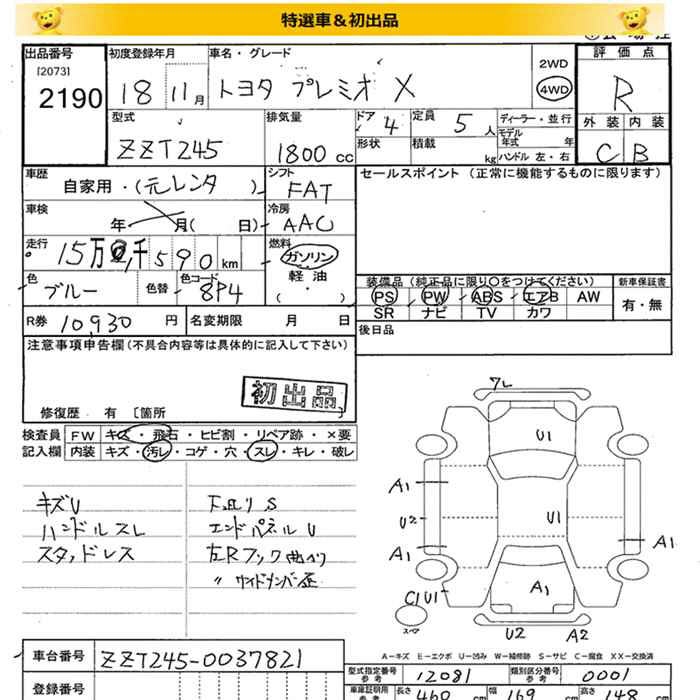 特選車＆初出品
出品番号
[2073]
2190
初度登録年月
18 11月
車名・グレード
トヨタ プレミオ X
2WD
4WD
評価点
R
外装 内装
C B
型式
ZZT245
排気量
1800 cc
ドア 4
形状
定員 5 人
積載 kg
ディーラー・並行
モデル年式 年
ハンドル 左・右
車歴
自家用・(元レンタ )
シフト
FAT
車検
年 月( 日)
冷房
AAC
走行
15万 千590km
燃料
ガソリン
軽油
( ・ )
色
ブルー
色替
色コード
8P4
セールスポイント（正常に機能するものに限ります）
装備品（純正品に限り○をつけてください）
PS PW ABS エアB AW
SR ナビ TV カワ
新車保証書
有・無
R券 10930 円
名変期限 月 日
後日品
注意事項申告欄(不具合内容等は具体的に記入して下さい)
初出品
修復歴 有 [箇所 ]
検査員
記入欄
FW キズ・飛石・ヒビ割・リペア跡・×要
内装 キズ・汚レ・コゲ・穴・スレ・キレ・破レ
キズU
ハンドルスレ
スタッドレス
下廻りS
エンドパネルU
左Rフック曲り
〃 サイドメンバー歪
ワレ
U1
A1
U2
U1
A1
A1
A1
C1U1
スペア
U2 A2
A－キズ E－エクボ U－凹み W－補修跡 S－サビ C－腐食 XX－交換済
車台番号
ZZT245-0037821
登録番号
型式指定番号
参考
12081
類別区分番号
参考
0001
車庫証明用
参考
長さ 460 cm
幅 169 cm
高さ 148 cm